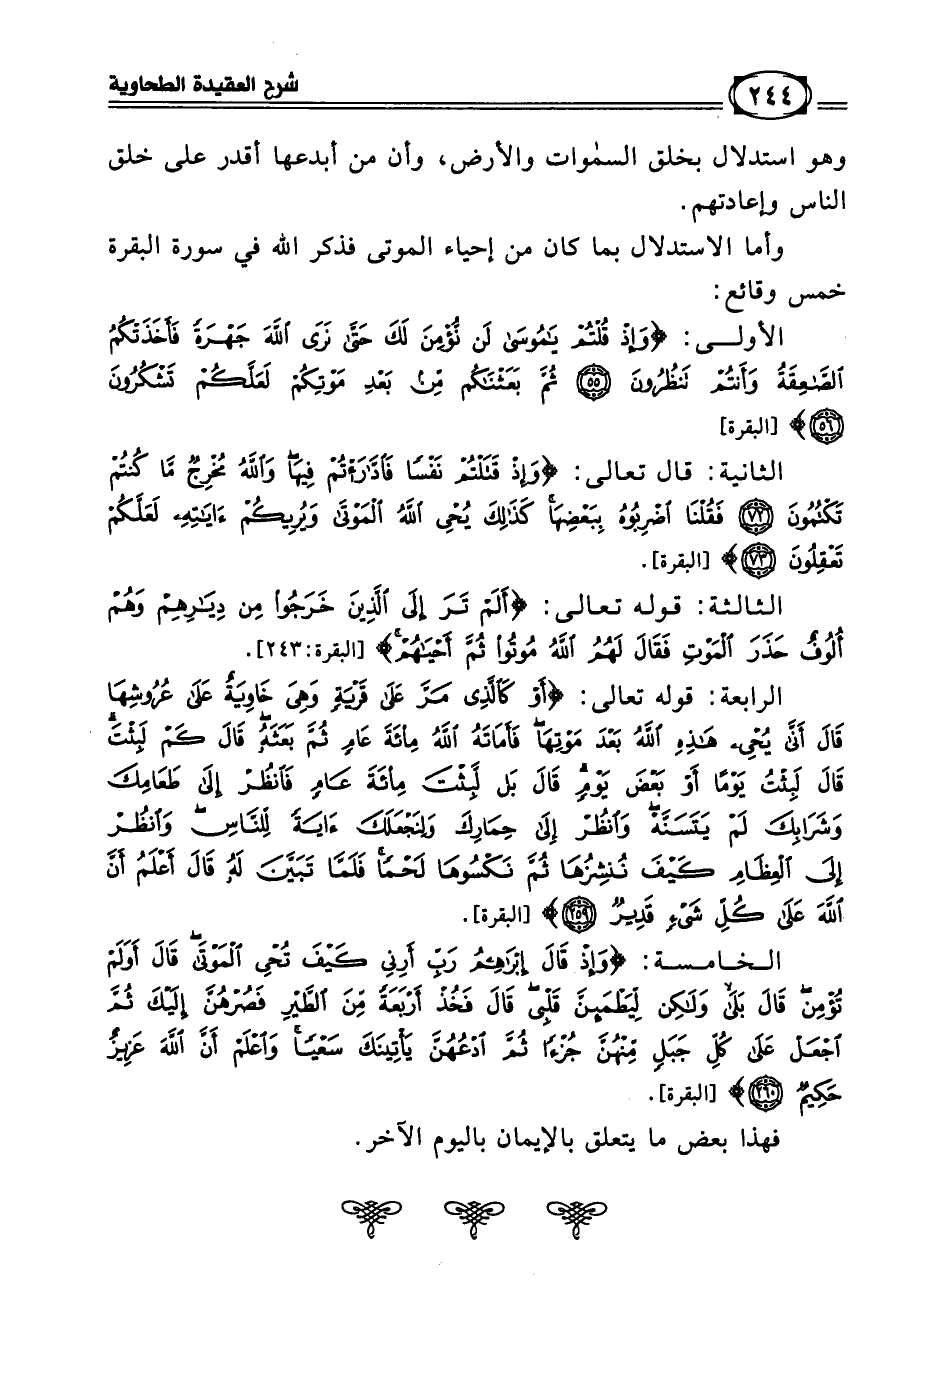 شرح العقيدة الطحاوية
٢٤٤
وهو استدلال بخلق السمٰوات والأرض، وأن من أبدعها أقدر على خلق
الناس وإعادتهم.
وأما الاستدلال بما كان من إحياء الموتى فذكر الله في سورة البقرة
خمس وقائع:
الأولـــى: ﴿وَإِذْ قُلْتُمْ يَٰمُوسَىٰ لَن نُّؤْمِنَ لَكَ حَتَّىٰ نَرَى ٱللَّهَ جَهْرَةً فَأَخَذَتْكُمُ
ٱلصَّٰعِقَةُ وَأَنتُمْ تَنظُرُونَ ٥٥ ثُمَّ بَعَثْنَٰكُم مِّنۢ بَعْدِ مَوْتِكُمْ لَعَلَّكُمْ تَشْكُرُونَ
٥٦﴾ [البقرة]
الثانية: قال تعالى: ﴿وَإِذْ قَتَلْتُمْ نَفْسًا فَٱدَّٰرَْٰٔتُمْ فِيهَا ۖ وَٱللَّهُ مُخْرِجٌ مَّا كُنتُمْ
تَكْتُمُونَ ٧٢ فَقُلْنَا ٱضْرِبُوهُ بِبَعْضِهَا ۚ كَذَٰلِكَ يُحْىِ ٱللَّهُ ٱلْمَوْتَىٰ وَيُرِيكُمْ ءَايَٰتِهِۦ لَعَلَّكُمْ
تَعْقِلُونَ ٧٣﴾ [البقرة].
الثالثة: قوله تعالى: ﴿أَلَمْ تَرَ إِلَى ٱلَّذِينَ خَرَجُوا۟ مِن دِيَٰرِهِمْ وَهُمْ
أُلُوفٌ حَذَرَ ٱلْمَوْتِ فَقَالَ لَهُمُ ٱللَّهُ مُوتُوا۟ ثُمَّ أَحْيَٰهُمْ ۚ﴾ [البقرة:٢٤٣].
الرابعة: قوله تعالى: ﴿أَوْ كَٱلَّذِى مَرَّ عَلَىٰ قَرْيَةٍ وَهِىَ خَاوِيَةٌ عَلَىٰ عُرُوشِهَا
قَالَ أَنَّىٰ يُحْىِۦ هَٰذِهِ ٱللَّهُ بَعْدَ مَوْتِهَا ۖ فَأَمَاتَهُ ٱللَّهُ مِا۟ئَةَ عَامٍ ثُمَّ بَعَثَهُۥ ۖ قَالَ كَمْ لَبِثْتَ ۖ
قَالَ لَبِثْتُ يَوْمًا أَوْ بَعْضَ يَوْمٍ ۖ قَالَ بَل لَّبِثْتَ مِا۟ئَةَ عَامٍ فَٱنظُرْ إِلَىٰ طَعَامِكَ
وَشَرَابِكَ لَمْ يَتَسَنَّهْ ۖ وَٱنظُرْ إِلَىٰ حِمَارِكَ وَلِنَجْعَلَكَ ءَايَةً لِّلنَّاسِ ۖ وَٱنظُرْ
إِلَى ٱلْعِظَامِ كَيْفَ نُنشِزُهَا ثُمَّ نَكْسُوهَا لَحْمًا ۚ فَلَمَّا تَبَيَّنَ لَهُۥ قَالَ أَعْلَمُ أَنَّ
ٱللَّهَ عَلَىٰ كُلِّ شَىْءٍ قَدِيرٌ ٢٥٩﴾ [البقرة].
الـخـامـسـة: ﴿وَإِذْ قَالَ إِبْرَٰهِۦمُ رَبِّ أَرِنِى كَيْفَ تُحْىِ ٱلْمَوْتَىٰ ۖ قَالَ أَوَلَمْ
تُؤْمِن ۖ قَالَ بَلَىٰ وَلَٰكِن لِّيَطْمَئِنَّ قَلْبِى ۖ قَالَ فَخُذْ أَرْبَعَةً مِّنَ ٱلطَّيْرِ فَصُرْهُنَّ إِلَيْكَ ثُمَّ
ٱجْعَلْ عَلَىٰ كُلِّ جَبَلٍ مِّنْهُنَّ جُزْءًا ثُمَّ ٱدْعُهُنَّ يَأْتِينَكَ سَعْيًا ۚ وَٱعْلَمْ أَنَّ ٱللَّهَ عَزِيزٌ
حَكِيمٌ ٢٦٠﴾ [البقرة].
فهذا بعض ما يتعلق بالإيمان باليوم الآخر.